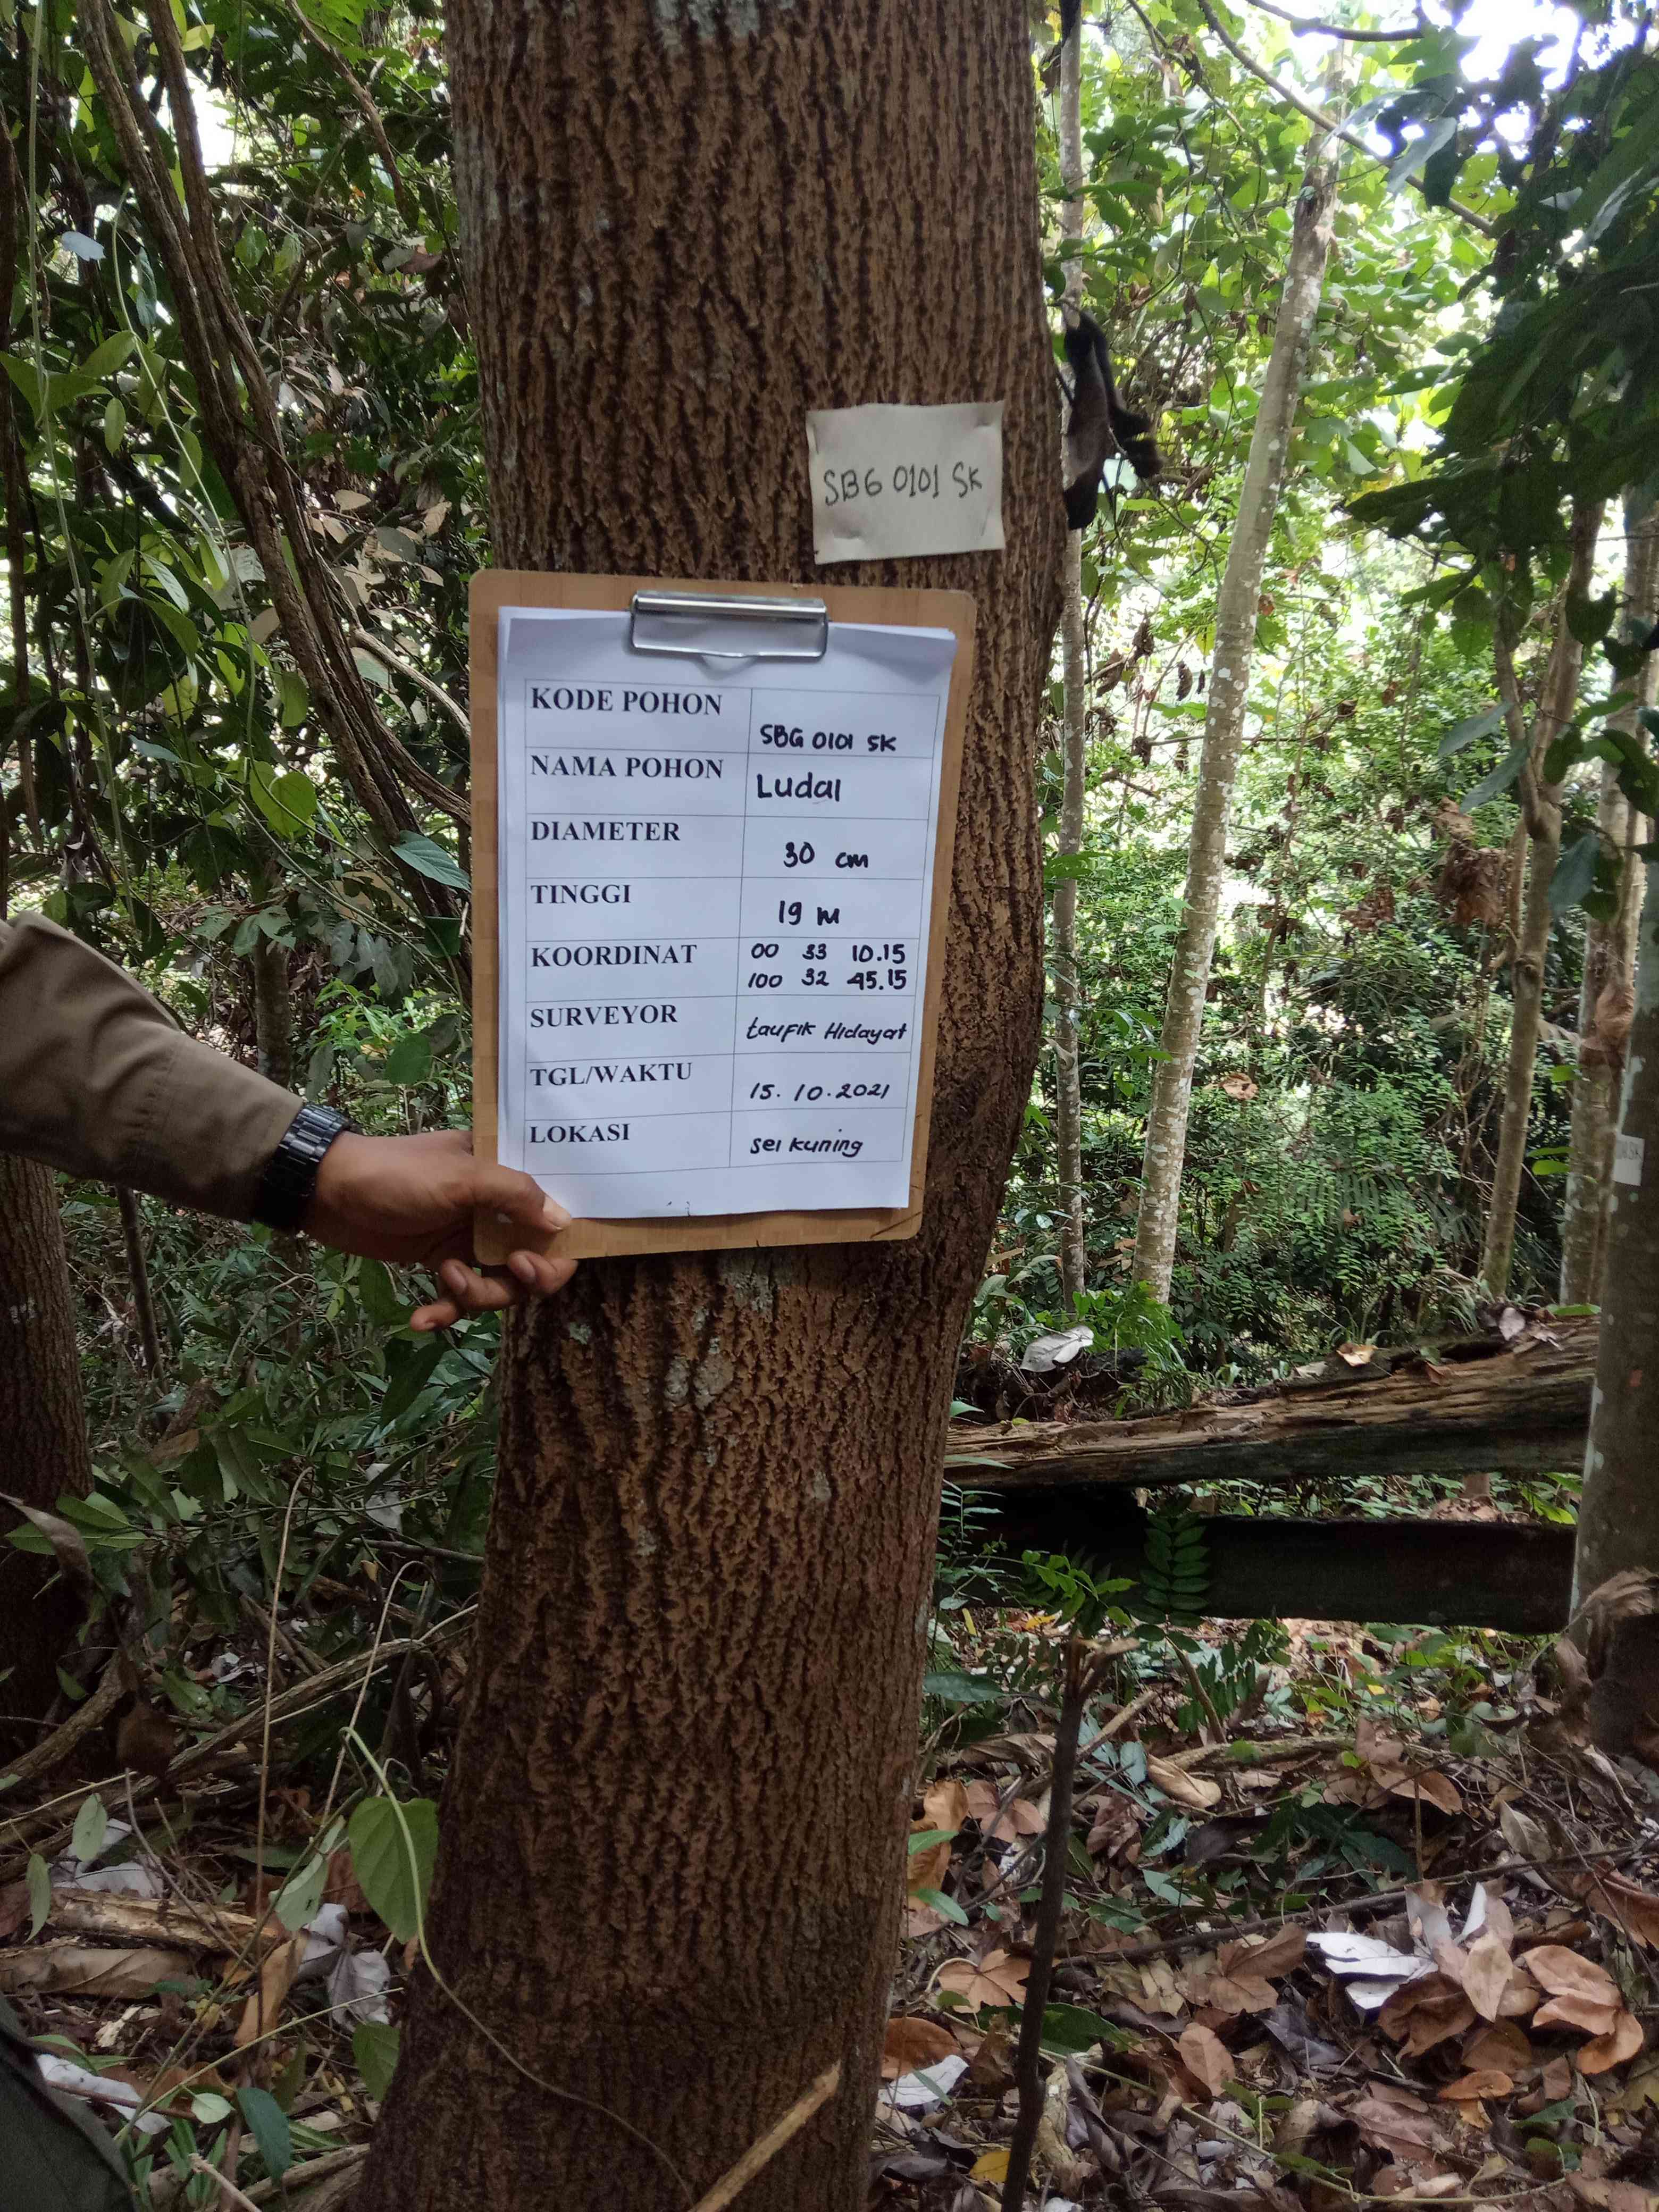 SBG 0101 SK
KODE POHON SBG 0101 SK
NAMA POHON Ludai
DIAMETER 30 cm
TINGGI 19 m
KOORDINAT 00 33 10.15
100 32 45.15
SURVEYOR taufik Hidayat
TGL/WAKTU 15.10.2021
LOKASI sei kuning